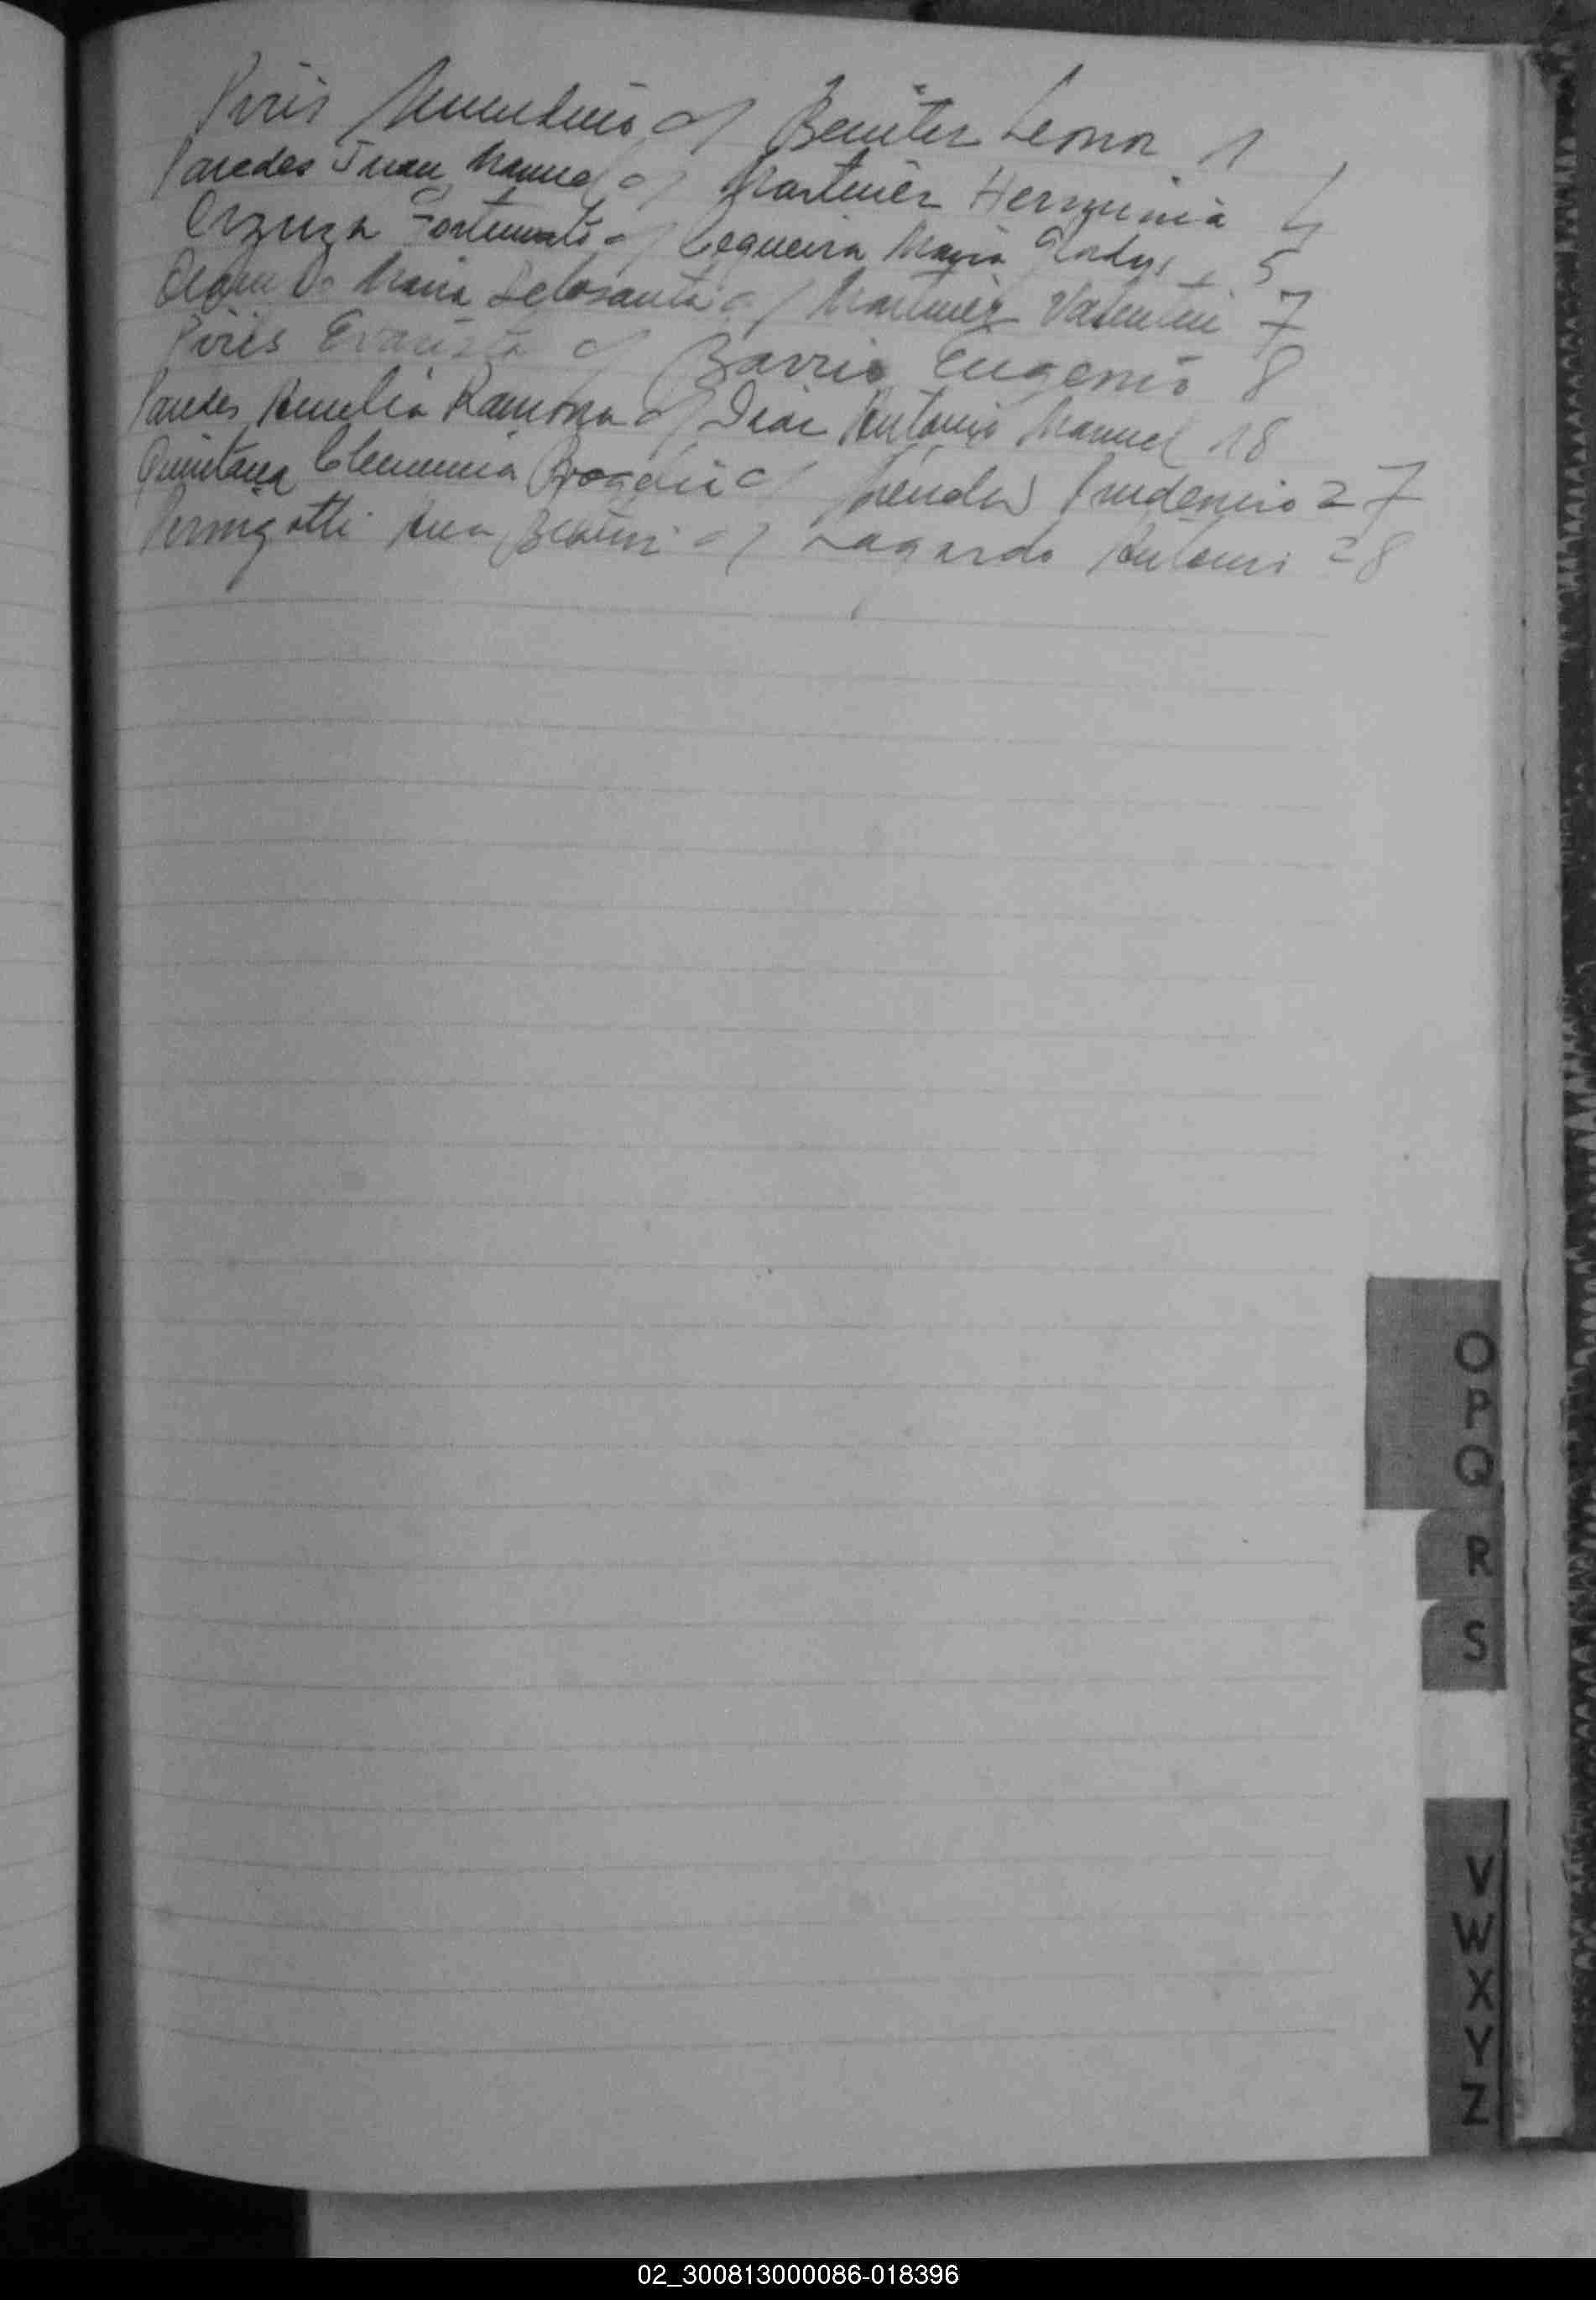 Piris Numeriano c/ Benitez Leonor 1
Paredes Juan Manuel c/ Martinez Herminia 4
Orzuza Fortunato c/ Cequeira Maria Gladys 5
Maria Delosanta c/ Martinez Valentin 7
Piris Evarista c/ Barrio Eugenio 8
Paredes Amelia Ramona c/ Diaz Antonio Manuel 18
Quintana Clemencia c/ Prudencio 27
Ana Beatriz c/ Lagardo Antonio 28
O
P
Q
R
S
V
W
X
Y
Z
02_300813000086-018396